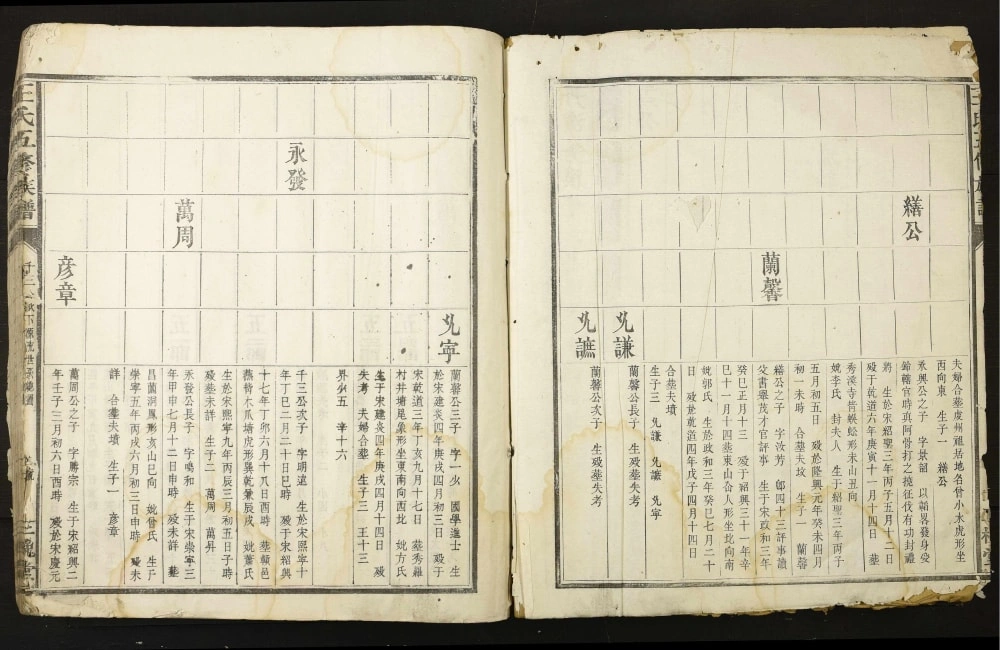 繕公
蘭馨
夫婦合墓虔州祖居地名曾小水虎形坐
西向東 生子一 繕公
永興公之子 字景韶 以韜畧發身受
將 生於宋紹聖三年丙子五月十二日
殁于乾道六年庚寅十一月十四日 墓
秀溪寺背蜈蚣形未山丑向
妣李氏 封夫人 生于紹聖三年丙子
五月初五日 殁於隆興元年癸未四月
初一未時 合墓夫坟 生子一 蘭馨
繕公之子 字汝芳 郎四十三評事讀
父書舉茂才官評事 生于宋政和三年
癸巳正月十三 殁于紹興三十一年辛
巳十一月十四墓東山侖人形坐北向南
妣郭氏 生於政和三年癸巳七月二十
日 殁於乾道四年戊子四月十四日
合墓夫墳
生子三 允謙 允譕 允寧
允謙
蘭馨公長子 生殁墓失考
允譕
蘭馨公次子 生殁墓失考
允寧
蘭馨公三子 字一少 國學進士 生
於宋建炎四年庚戌四月初三日 殁于
宋乾道三年丁亥九月十七日 墓秀雞
村井塘尾象形坐東南向西北 妣方氏
生于宋建炎四年庚戌四月十四日 殁
失考 夫婦合墓 生子三 王十三
界少五 辛十六
永發
千三公次子 字明遠 生於宋熙寧十
年丁巳二月二十日巳時 殁于宋紹興
十七年丁卯六月十八日酉時 墓贛邑
生於宋熙寧九年丙辰三月初五日子時
殁墓未詳 生子二 萬周 萬昇
萬周
永發公長子 字鳴和 生于宋崇寧三
年甲申七月十二日申時 殁未詳 墓
昌蘭洞鳳形亥山巳向 妣曾氏 生于
崇寧五年丙戌六月初三日申時 殁未
詳 合墓夫墳 生子一 彦章
彦章
萬周公之子 字勝宗 生于宋紹興二
年壬子三月初六日酉時 殁於宋慶元
王氏五修族譜